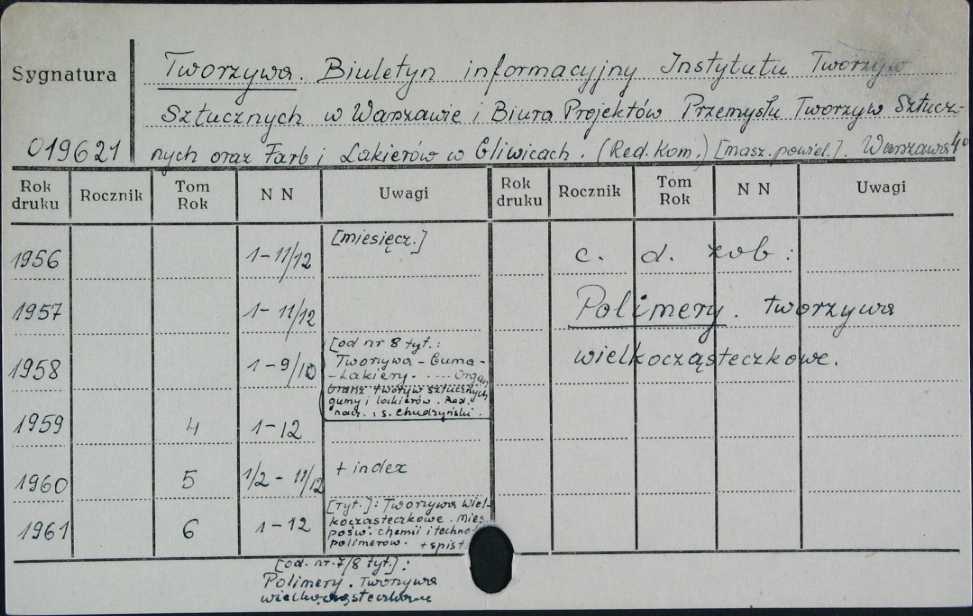 Sygnatura
019621
Tworzywa. Biuletyn informacyjny Instytutu Tworzyw
Sztucznych w Warszawie i Biura Projektów Przemysłu Tworzyw Sztucz-
nych oraz Farb i Lakierów w Gliwicach. (Red. Kom.) [masz. powiel.]. Warszawa 4°
Rok druku Rocznik Tom Rok N N Uwagi Rok druku Rocznik Tom Rok N N Uwagi
1956 1-11/12 [miesięcz.]
1957 1-11/12
1958 1-9/10 [od nr 8 tyt.:
Tworzywa - Guma -
- Lakiery. ..... Organ
branż tworzyw sztucznych,
gumy i lakierów. Red.
nacz.: S. Chudzyński.
1959 4 1-12
1960 5 1/2 - 11/12 + index
1961 6 1-12 [Tyt.]: Tworzywa Wiel-
kocząsteczkowe. Mies.
pośw. chemii i techno
polimerów. + spis t.
[od. nr. 7/8 tyt.]:
Polimery. Tworzywa
wielkocząsteczkowe
c. d. zob:
Polimery. tworzywa
wielkocząsteczkowe.